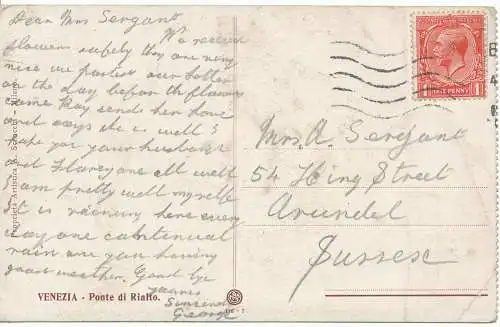 Dear Mrs Sergant
We received
flowers safely they are very
nice we posted our letter
on the day before the flowers
came Kay sends her love
and says she is well I
hope your husband
and are all well
I am pretty well myself
It is raining here every
day one continual
rain are you having
good weather. Good bye
yours
Sincerely
George
ONE PENNY
Mrs. A. Sergant
54 King Street
Arundel
Sussex
VENEZIA - Ponte di Rialto.